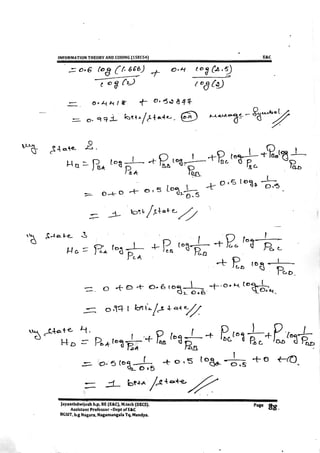 INFORMATION THEORY AND CODING (15EC54) E&C
= 0.6 log (1.666) / log(2) + 0.4 log (2.5) / log(2)
= 0.4418 + 0.52877
= 0.971 bits/state. (or) message-symbol//
|||ly State 2.
H_B = P_BA log 1/P_BA + P_BB log 1/P_BB + P_BC log 1/P_BC + P_BD log 1/P_BD
= 0+0+ 0.5 log_2 1/0.5 + 0.5 log_2 1/0.5
= 1 bit/state//
|||ly State 3
H_C = P_CA log 1/P_CA + P_CB log 1/P_CB + P_CC log 1/P_CC
+ P_CD log 1/P_CD
= 0+0+ 0.6 log_2 1/0.6 + 0.4 log_2 1/0.4
= 0.971 bits/state//
|||ly State 4.
H_D = P_DA log 1/P_DA + P_DB log 1/P_DB + P_DC log 1/P_DC + P_DD log 1/P_DD
= 0.5 log_2 1/0.5 + 0.5 log_2 1/0.5 +0 +0
= 1 bits/state//
Jayanthdwijesh h.p, BE (E&C), M.tech (DECS).
Assistant Professor –Dept of E&C
BGSIT, b.g Nagara, Nagamangala Tq, Mandya.
Page 88